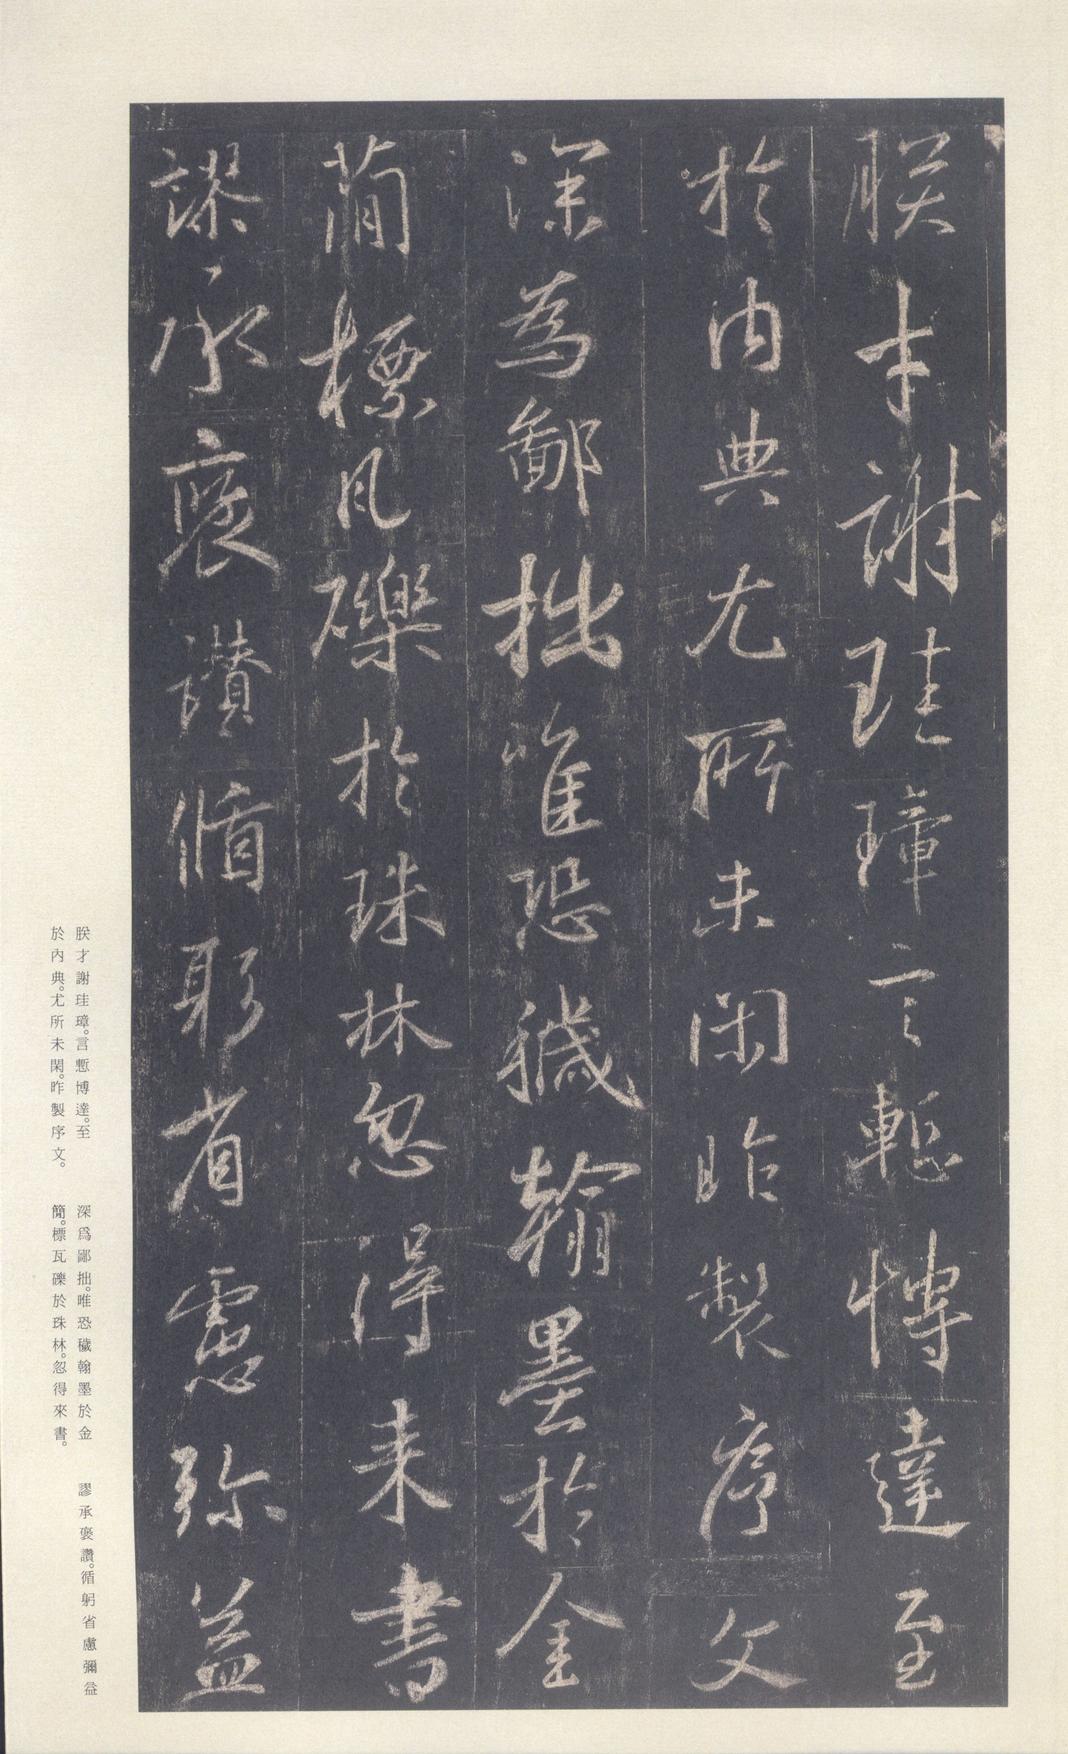 朕才謝珪璋言慙博達至
於內典尤所未閑昨製序文
深為鄙拙唯恐穢翰墨於金
蕳標瓦礫於珠林忽得来書
謬承褒讃循躬省慮弥益
朕才謝珪璋。言慙博達。至
於內典。尤所未閑。昨製序文。
深爲鄙拙。唯恐穢翰墨於金
簡。標瓦礫於珠林。忽得來書。
謬承褒讚。循躬省慮彌益